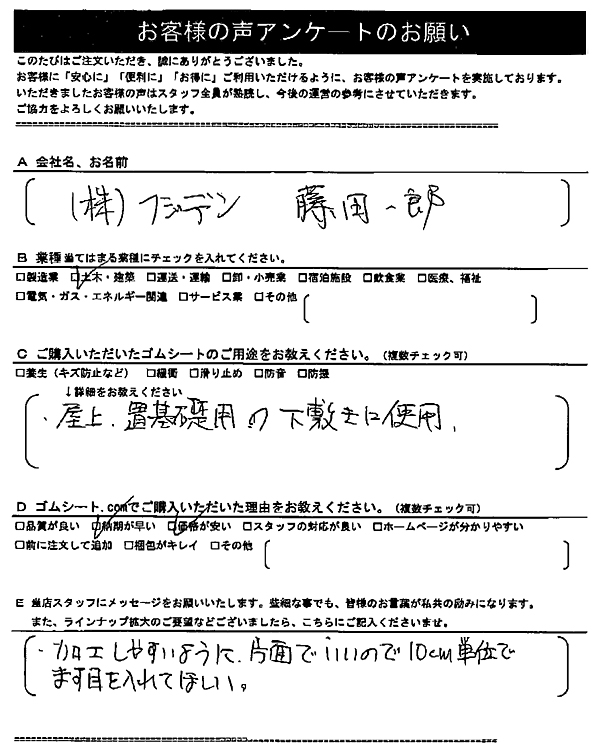 お客様の声アンケートのお願い
このたびはご注文いただき、誠にありがとうございました。
お客様に「安心に」「便利に」「お得に」ご利用いただけるように、お客様の声アンケートを実施しております。
いただきましたお客様の声はスタッフ全員が熟読し、今後の運営の参考にさせていただきます。
ご協力をよろしくお願いいたします。
A 会社名、お名前
(株)フジデン 藤田一郎
B 業種当てはまる業種にチェックを入れてください。
□製造業 ☑土木・建築 □運送・運輸 □卸・小売業 □宿泊施設 □飲食業 □医療、福祉
□電気・ガス・エネルギー関連 □サービス業 □その他
C ご購入いただいたゴムシートのご用途をお教えください。(複数チェック可)
□養生(キズ防止など) □緩衝 □滑り止め □防音 □防振
↓詳細をお教えください
・屋上、置基礎用の下敷きに使用、
D ゴムシート.comでご購入いただいた理由をお教えください。(複数チェック可)
□品質が良い ☑納期が早い ☑価格が安い □スタッフの対応が良い □ホームページが分かりやすい
□前に注文して追加 □梱包がキレイ □その他
E 当店スタッフにメッセージをお願いいたします。些細な事でも、皆様のお言葉が私共の励みになります。
また、ラインナップ拡大のご要望などございましたら、こちらにご記入くださいませ。
・加工しやすいように、片面でいいので10cm単位で
ます目を入れてほしい。